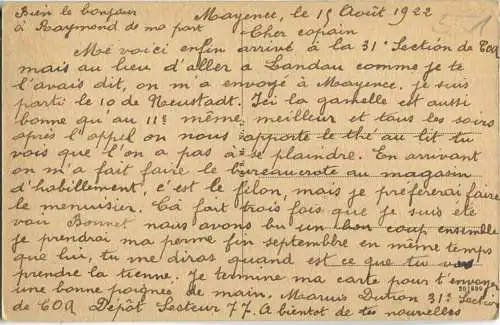 Bien le bonjour
à Raymond de ma part
Mayence, le 15 Août 1922
Cher copain
Me voici enfin arrivé à la 31e Section de COA
mais au lieu d'aller a Landau comme je te
l'avais dit, on m'a envoyé à Mayence. je suis
parti le 10 de Neustadt. Ici la gamelle est aussi
bonne qu'au 11e même meilleur et tous les soirs
après l'appel on nous apporte le thé au lit tu
vois que l'on a pas à se plaindre. En arrivant
on m'a fait faire le bureaucrate au magasin
d'habillement, c'est le filon, mais je préférerai faire
le menuisier. Cà fait trois fois que je suis été
voir Bonnet nous avons bu un bon coup ensemble
je prendrai ma perme fin septembre en même temps
que lui, tu me diras quand est ce que tu vas
prendre la tienne. Je termine ma carte pour t'envoyer
une bonne poignée de main. Marius Dutron 31e Section
de COA Dépôt Secteur 77. A bientot de tes nouvelles